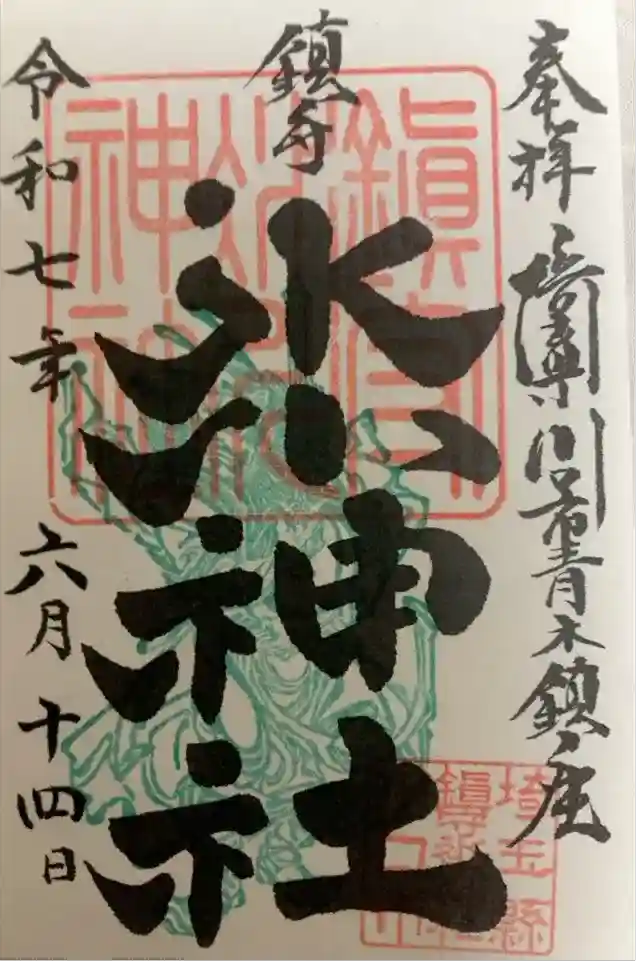 奉拝 埼玉県川口市青木鎮座
鎮守
氷川神社
令和七年 六月十四日
鎭守
氷川
神社
埼玉縣